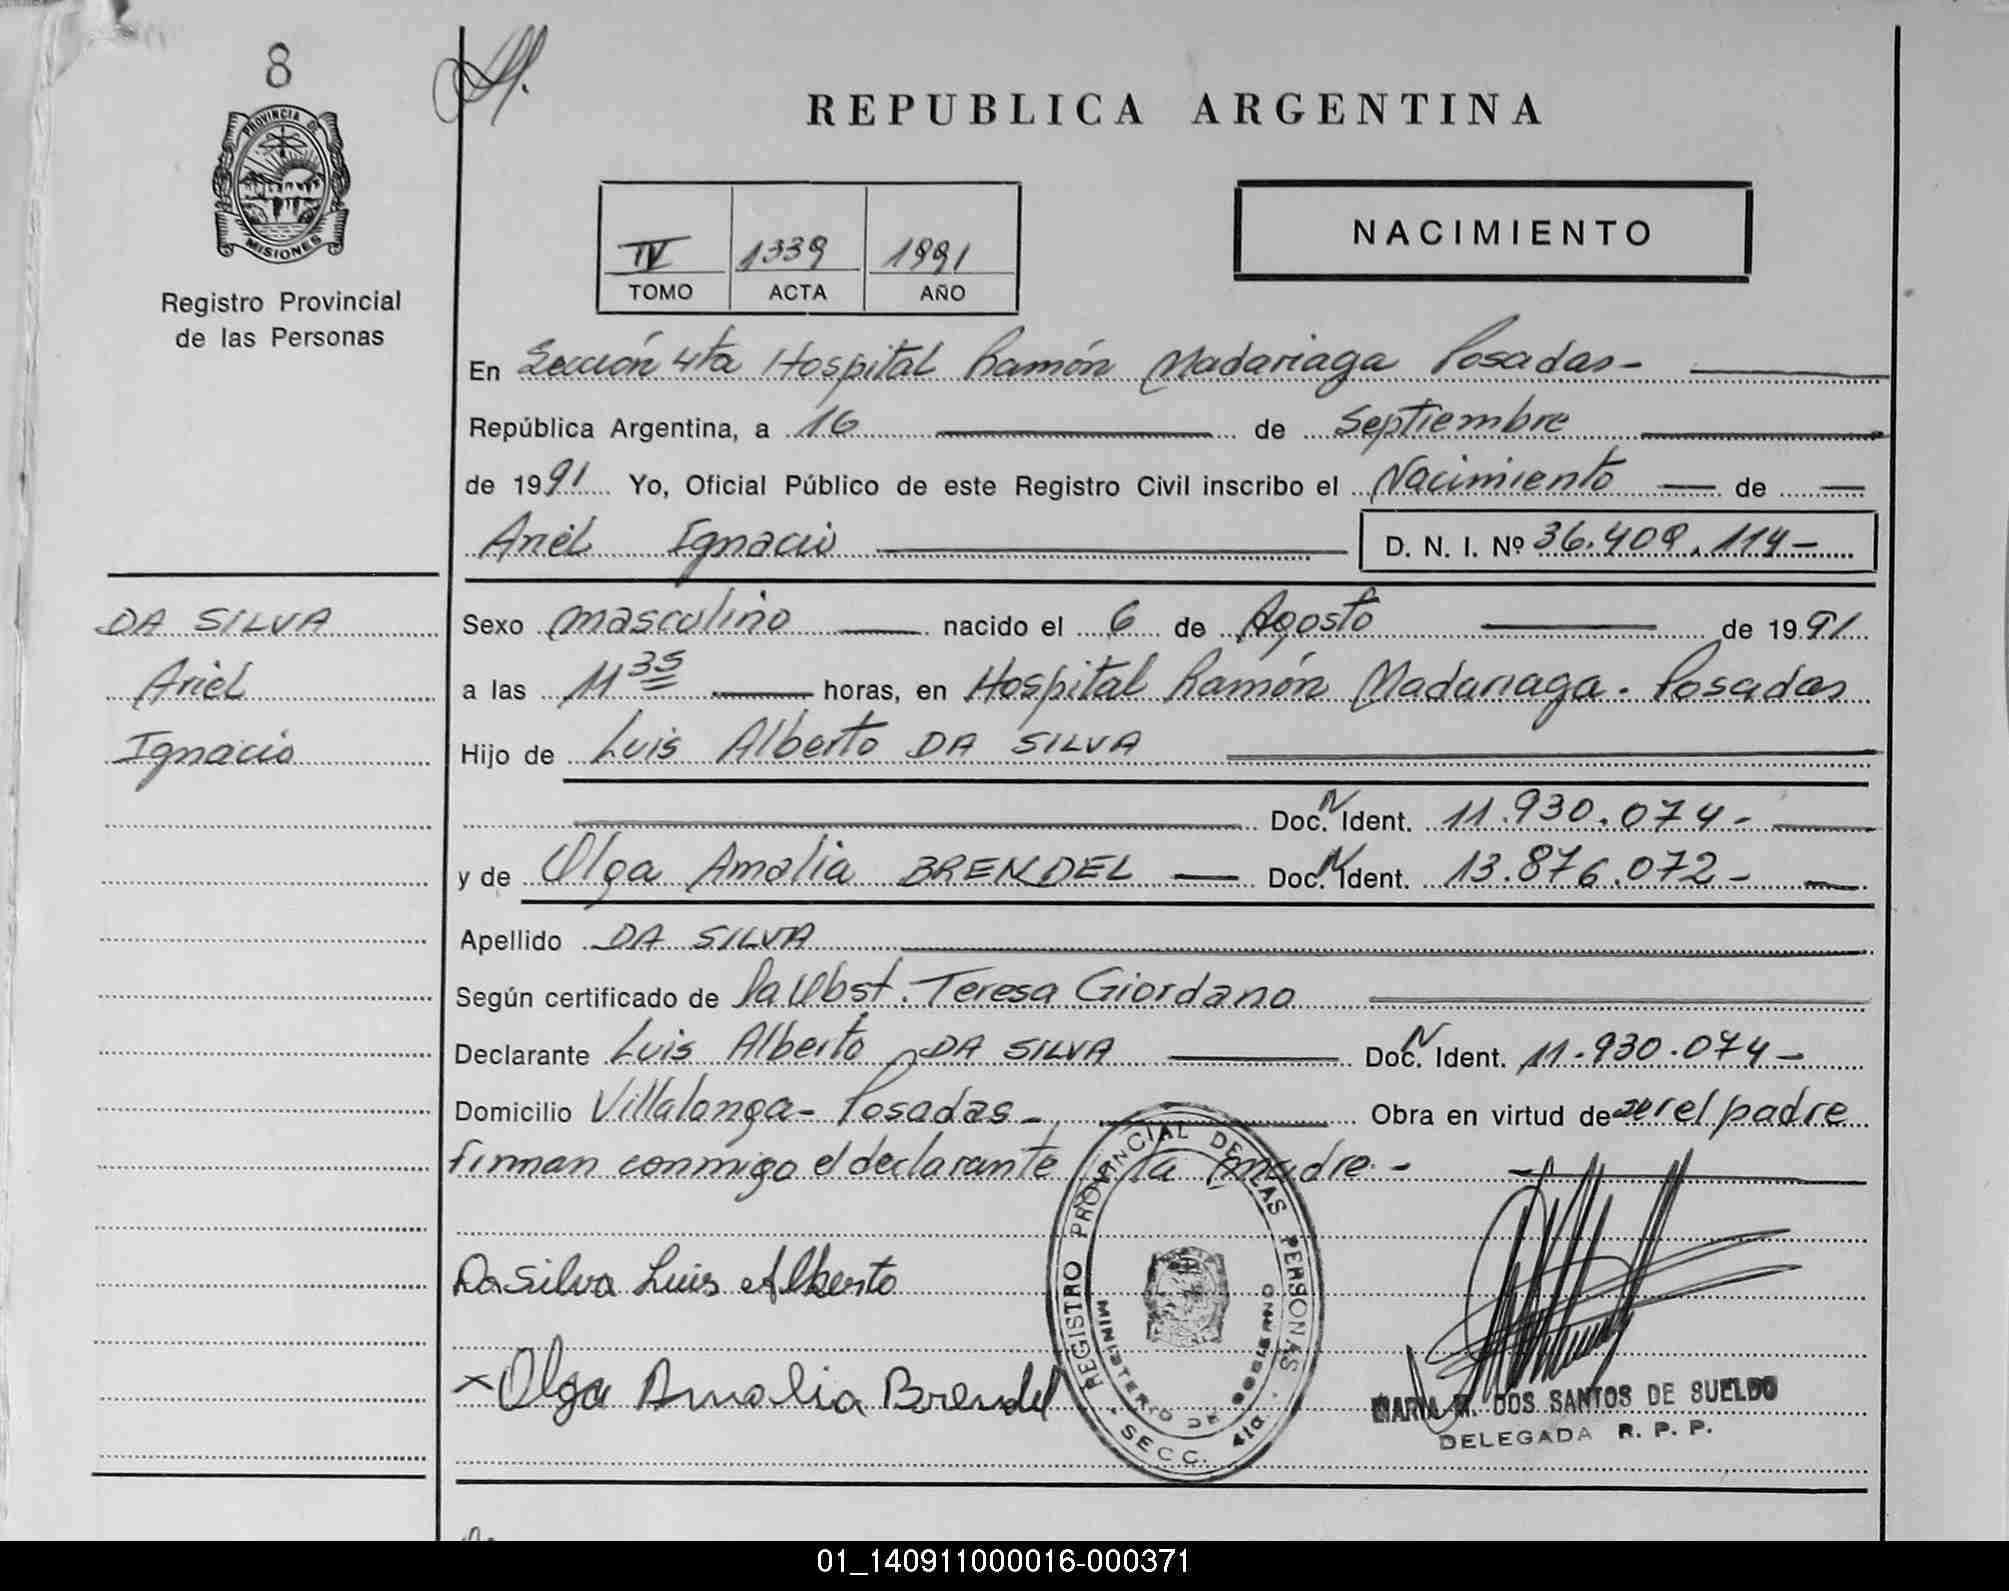 8
PROVINCIA DE
MISIONES
Registro Provincial
de las Personas
REPUBLICA ARGENTINA
IV 1339 1991
TOMO ACTA AÑO
NACIMIENTO
En Sección 4ta Hospital Ramón Madariaga Posadas-
República Argentina, a 16 de Septiembre
de 1991 Yo, Oficial Público de este Registro Civil inscribo el Nacimiento de
Ariel Ignacio D. N. I. Nº 36.409.114-
DA SILVA
Ariel
Ignacio
Sexo masculino nacido el 6 de Agosto de 1991
a las 11 35 horas, en Hospital Ramón Madariaga. Posadas
Hijo de Luis Alberto DA SILVA
Doc. N Ident. 11.930.074-
y de Olga Amalia BRENDEL Doc. N Ident. 13.876.072-
Apellido DA SILVA
Según certificado de la Obst. Teresa Giordano
Declarante Luis Alberto DA SILVA Doc. N Ident. 11.930.074-
Domicilio Villalonga- Posadas- Obra en virtud de ser el padre
firman conmigo el declarante y la madre.-
Da Silva Luis Alberto
x Olga Amalia Brendel
REGISTRO PROVINCIAL DE LAS PERSONAS
MINISTERIO DE GOBIERNO
SECC. 4ta.
MARIA M. DOS SANTOS DE SUELDO
DELEGADA R. P. P.
01_140911000016-000371